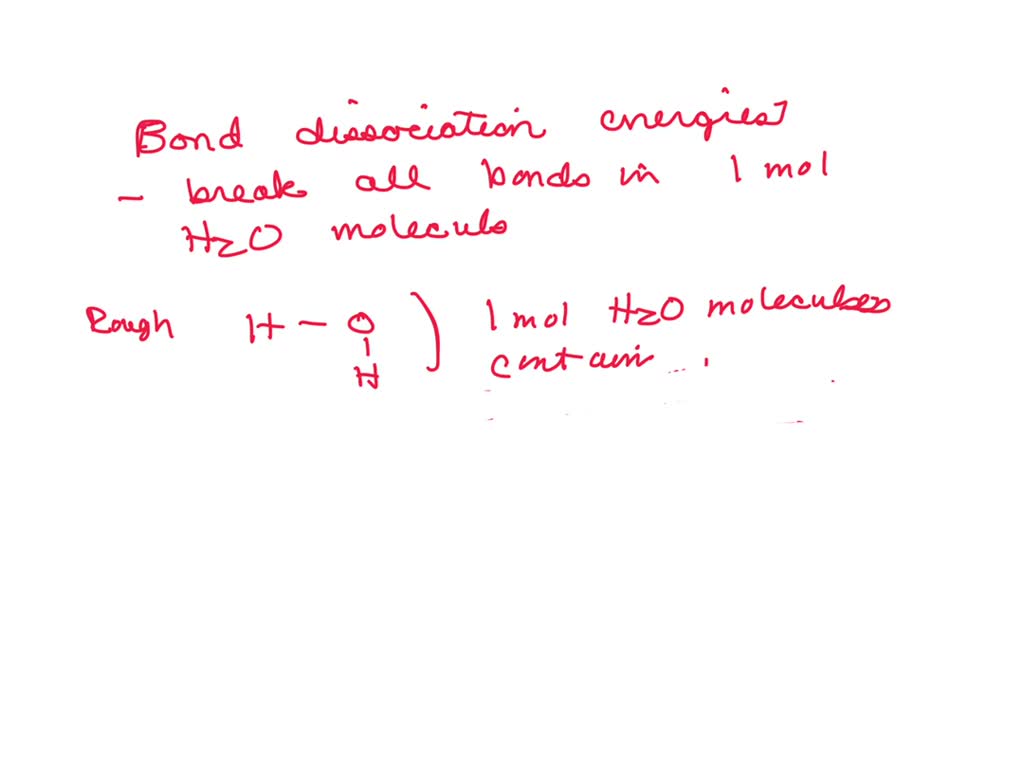 Bond dissociation energies
- break all bonds in 1 mol
H2O molecules
Rough H - O ) 1 mol H2O molecules
H contain ...